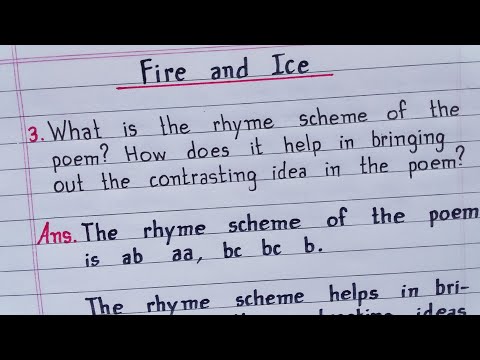 Fire and Ice
3. What is the rhyme scheme of the
poem? How does it help in bringing
out the contrasting idea in the poem?
Ans. The rhyme scheme of the poem
is ab aa, bc bc b.
The rhyme scheme helps in bri-
ideas